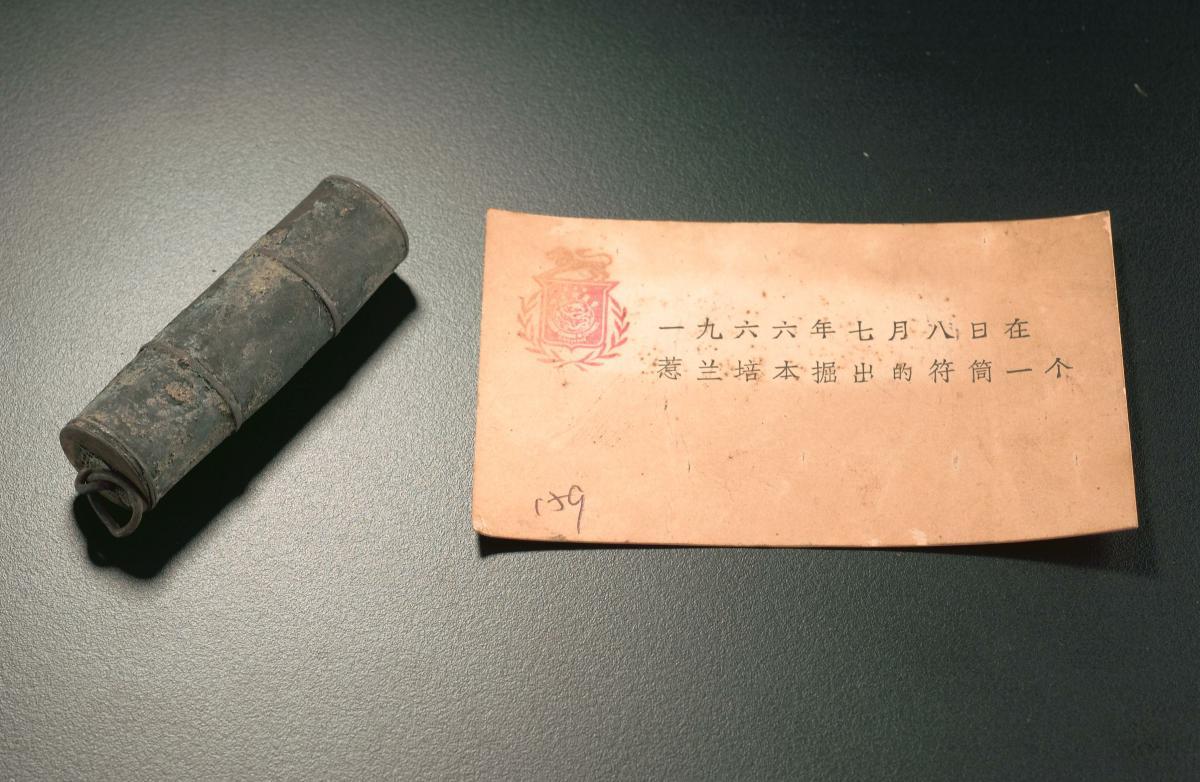 一九六六年七月八日在
惹兰培本掘出的符筒一个
159